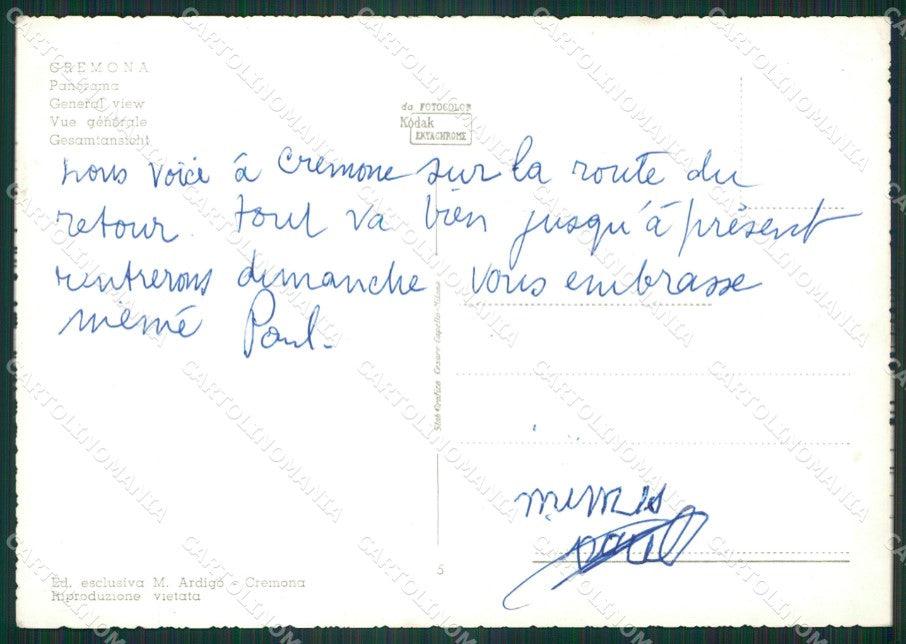 CREMONA
Panorama
General view
Vue générale
Gesamtansicht
da FOTOCOLOR
Kodak
EKTACHROME
nous voici à Cremone sur la route du
retour. tout va bien jusqu'à présent
rentrerons dimanche vous embrasse
mémé Paul.
Stab. Grafico Cesare Capello - Milano
Paul
5
Ed. esclusiva M. Ardigò - Cremona
Riproduzione vietata
CARTOLINOMANIA